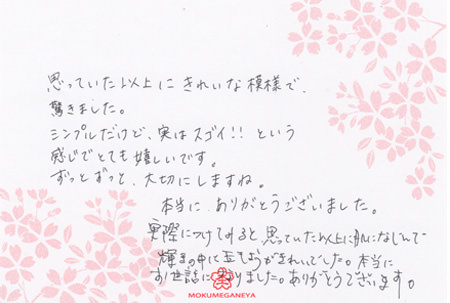 思っていた以上に きれいな模様で、
驚きました。
シンプルだけど、実はスゴイ!! という
感じでとても嬉しいです。
ずっとずっと、大切にしますね。
本当に、ありがとうございました。
実際につけてみると 思っていた以上に肌になじんで
輝きの中に
がきれいでした。本当に
お世話になりました。ありがとうございます。
MOKUMEGANEYA